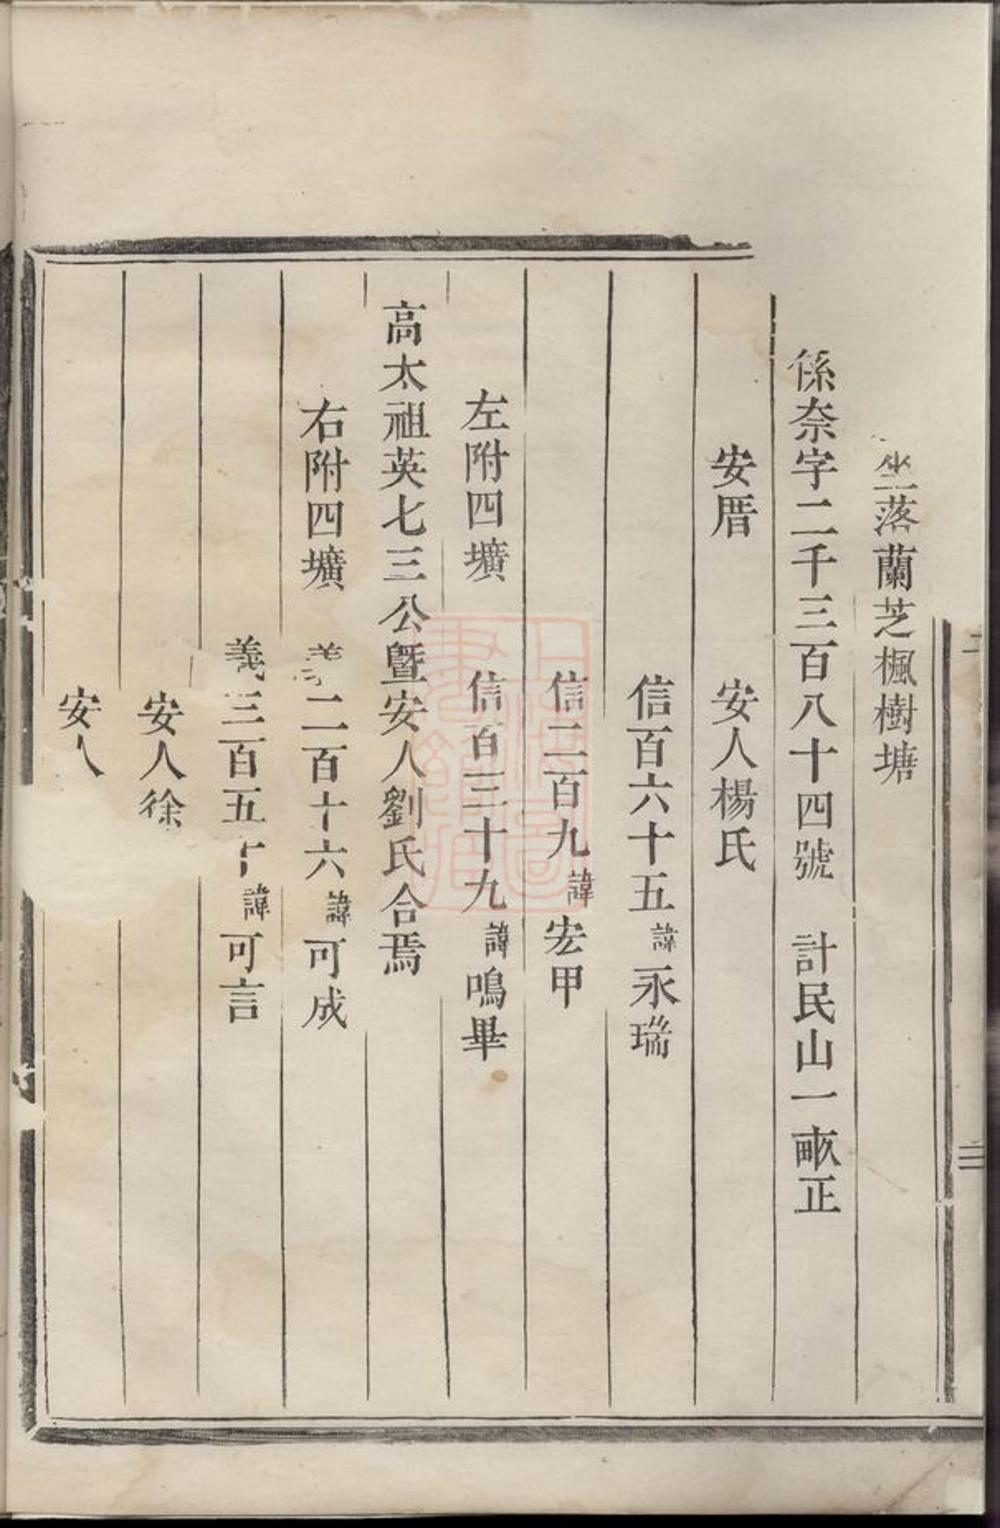 坐落蘭芝楓樹塘
係奈字二千三百八十四號　計民山一畝正
安厝　安人楊氏
信百六十五諱永瑞
信二百九諱宏甲
左附四壙　信百三十九諱鳴畢
高太祖英七三公曁安人劉氏合焉
右附四壙　義二百十六諱可成
義三百五十諱可言
安人徐
安人